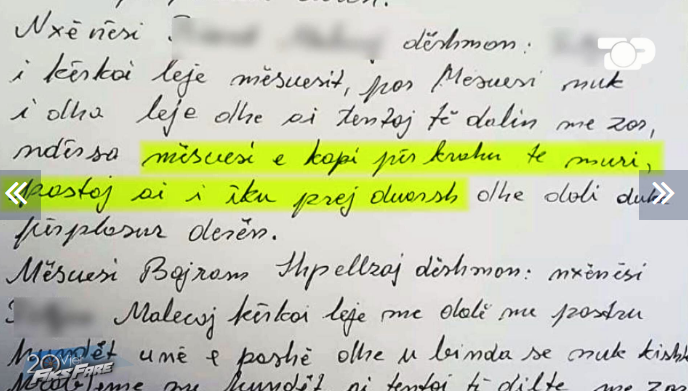 Nxënësi dëshmon:
i kërkoi leje mësuesit, por Mësuesi nuk
i dha leje dhe ai tentoj të dalin me zor,
ndërsa mësuesi e kapi për krahu te muri,
pastaj ai i iku prej duarsh dhe doli duke
përplasur derën.
Mësuesi Bajram Shpellzaj dëshmon: nxënësi
Malecoj kërkoi leje me dalë me pastru
hundët unë e pashë dhe u binda se nuk kishte
me hundët ai tentoj të dilte me zor
TOP
20 vjet
FIKS FARE